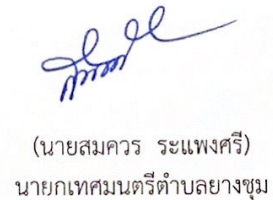 (นายสมควร ระแพงศรี)
นายกเทศมนตรีตำบลยางชุม